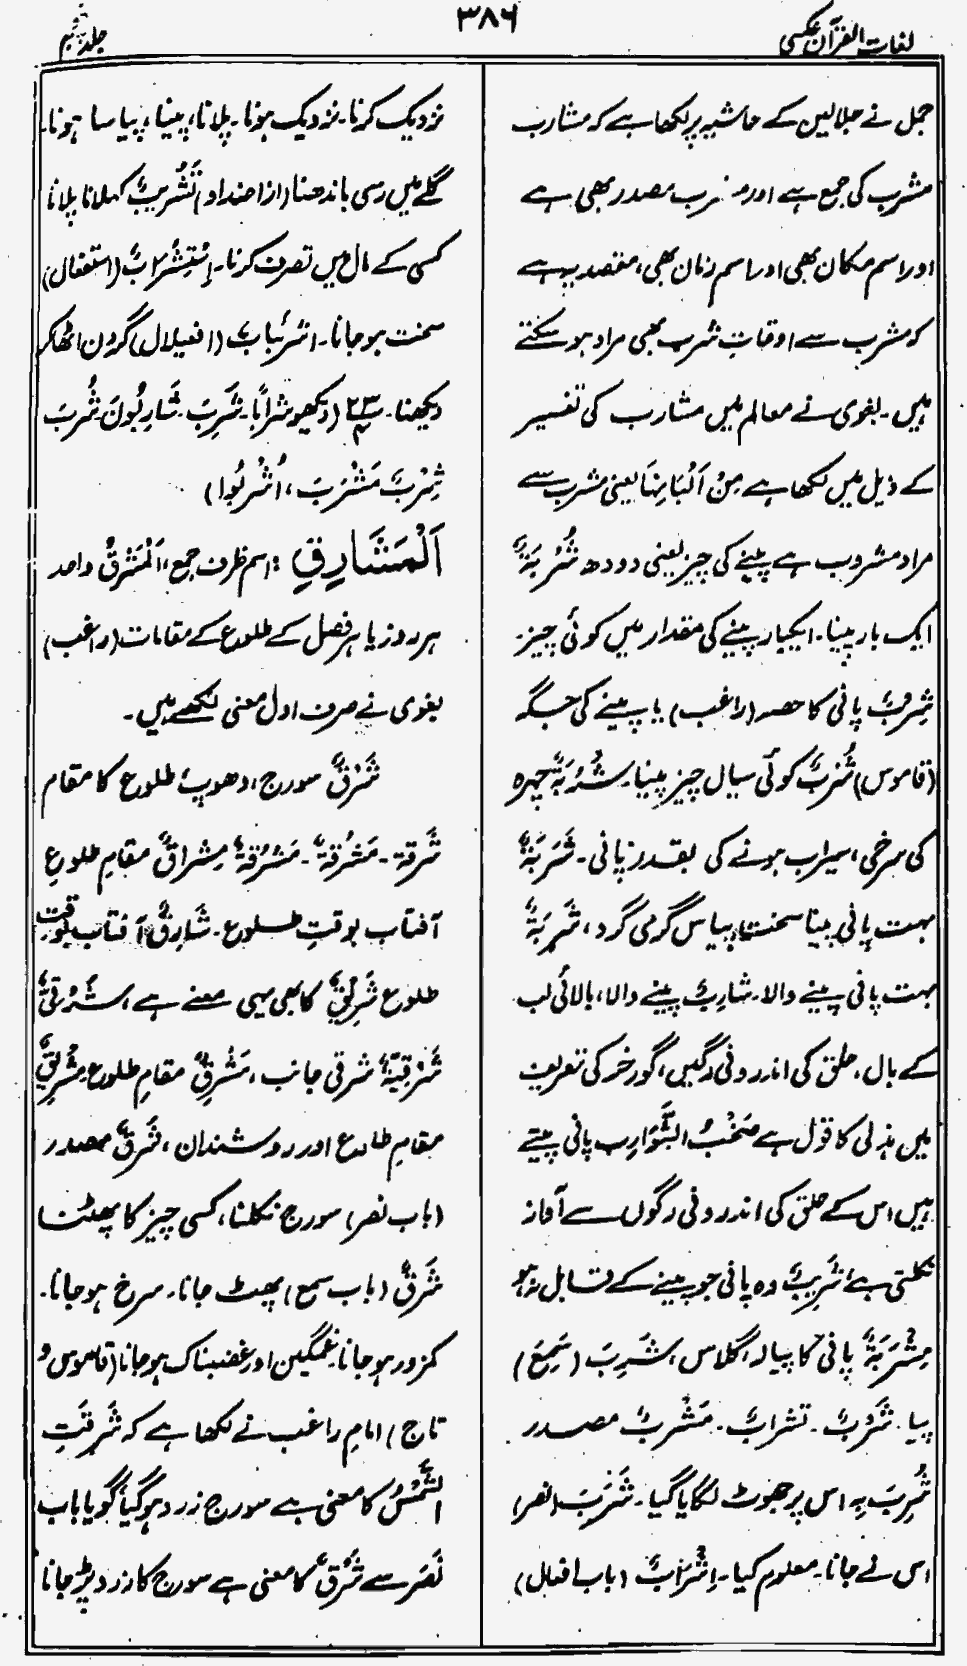 لغات القرآن عکسی
۳۸۶
جلد پنجم
جمل نے جلالین کے حاشیہ پر لکھا ہے کہ مشارب
مشرب کی جمع ہے اور مشرب مصدر بھی ہے
اور اسم مکان بھی اور اسم زمان بھی، مقصد یہ ہے
کہ مشرب سے اوقاتِ شرب بھی مراد ہو سکتے
ہیں۔ بغوی نے معالم میں مشارب کی تفسیر
کے ذیل میں لکھا ہے مِنْ اَلْبَانِہَا یعنی مشرب سے
مراد مشروب ہے پینے کی چیز یعنی دودھ شُرْبَۃٌ
ایک بار پینا۔ ایکبار پینے کی مقدار میں کوئی چیز۔
شِرْبٌ پانی کا حصہ (راغب) یا پینے کی جگہ
(قاموس) شُرْبٌ کوئی سیال چیز پینا۔ شُرْبَۃٌ چہرہ
کی سرخی، سیراب ہونے کی بقدر پانی۔ شَرَبَۃٌ
بہت پانی پینا سخت پیاس گرمی گرد، شَرِبَۃٌ
بہت پانی پینے والا۔ شارِبٌ پینے والا، بالائی لب
کے بال، حلق کی اندرونی رگیں، گورخر کی تعریف
میں ہذلی کا قول ہے صَخْبُ الشَّوَارِب پانی پیتے
ہیں اس کے حلق کی اندرونی رگوں سے آواز
نکلتی ہے شَرِیْبٌ وہ پانی جو پینے کے قابل ہو
مِشْرَبَۃٌ پانی کا پیالہ، گلاس، شَرِبَ (سَمِعَ)
پیا۔ شُرْبٌ۔ تشرابٌ۔ مَشْرَبٌ مصدر
شُرِبَ بِہٖ اس پر جھوٹ لگایا گیا۔ شَرَبَ (نصر)
اس نے جانا۔ معلوم کیا۔ اِشْرَابٌ (باب افعال)
نزدیک کرنا۔ نزدیک ہونا۔ پلانا، پینا، پیاسا ہونا۔
گلے میں رسی باندھنا (از اضداد) تَشْرِیْبٌ کہلانا پلانا
کسی کے مال میں تصرف کرنا۔ اِسْتِشْرَابٌ (استفعال)
سخت ہوجانا۔ اشرئبابٌ (افعیلال) گردن اٹھا کر
دیکھنا۔ (دیکھو شرابًا۔ شَرِبَ۔ شَارِبُونَ۔ شُرْبَ
شِرْبَ مَشْرَبَ، اُشْرِبُوا)
اَلْمَشَارِقِ: اسم ظرف جمع، اَلْمَشْرِقُ واحد
ہر روز یا ہر فصل کے طلوع کے مقامات (راغب)
بغوی نے صرف اول معنی لکھے ہیں۔
شَرْقٌ سورج، دھوپ، طلوع کا مقام
شَرقۃ۔ مَشْرُقۃٌ۔ مَشْرَقۃٌ مِشراقٌ مقامِ طلوعِ
آفتاب بوقتِ طلوع۔ شَارِقٌ آفتاب بوقتِ
طلوع شَرِیْقٌ کا بھی یہی معنے ہے، شَرْقِیٌّ
شَرْقِیَّۃٌ شرقی جانب، مَشْرِقٌ مقامِ طلوع مِشْرِیْقٌ
مقامِ طلوع اور روشندان، شَرْقٌ مصدر
(باب نصر) سورج نکلنا، کسی چیز کا پھٹنا
شَرَقٌ (باب سمع) پھٹ جانا۔ سرخ ہوجانا۔
کمزور ہوجانا غمگین اور غضبناک ہوجانا (قاموس و
تاج) امام راغب نے لکھا ہے کہ شَرَقَتِ
الشَّمْسُ کا معنی ہے سورج زرد ہوگیا گویا باب
نَصَرَ سے شَرْقٌ کا معنی ہے سورج کا زرد پڑجانا